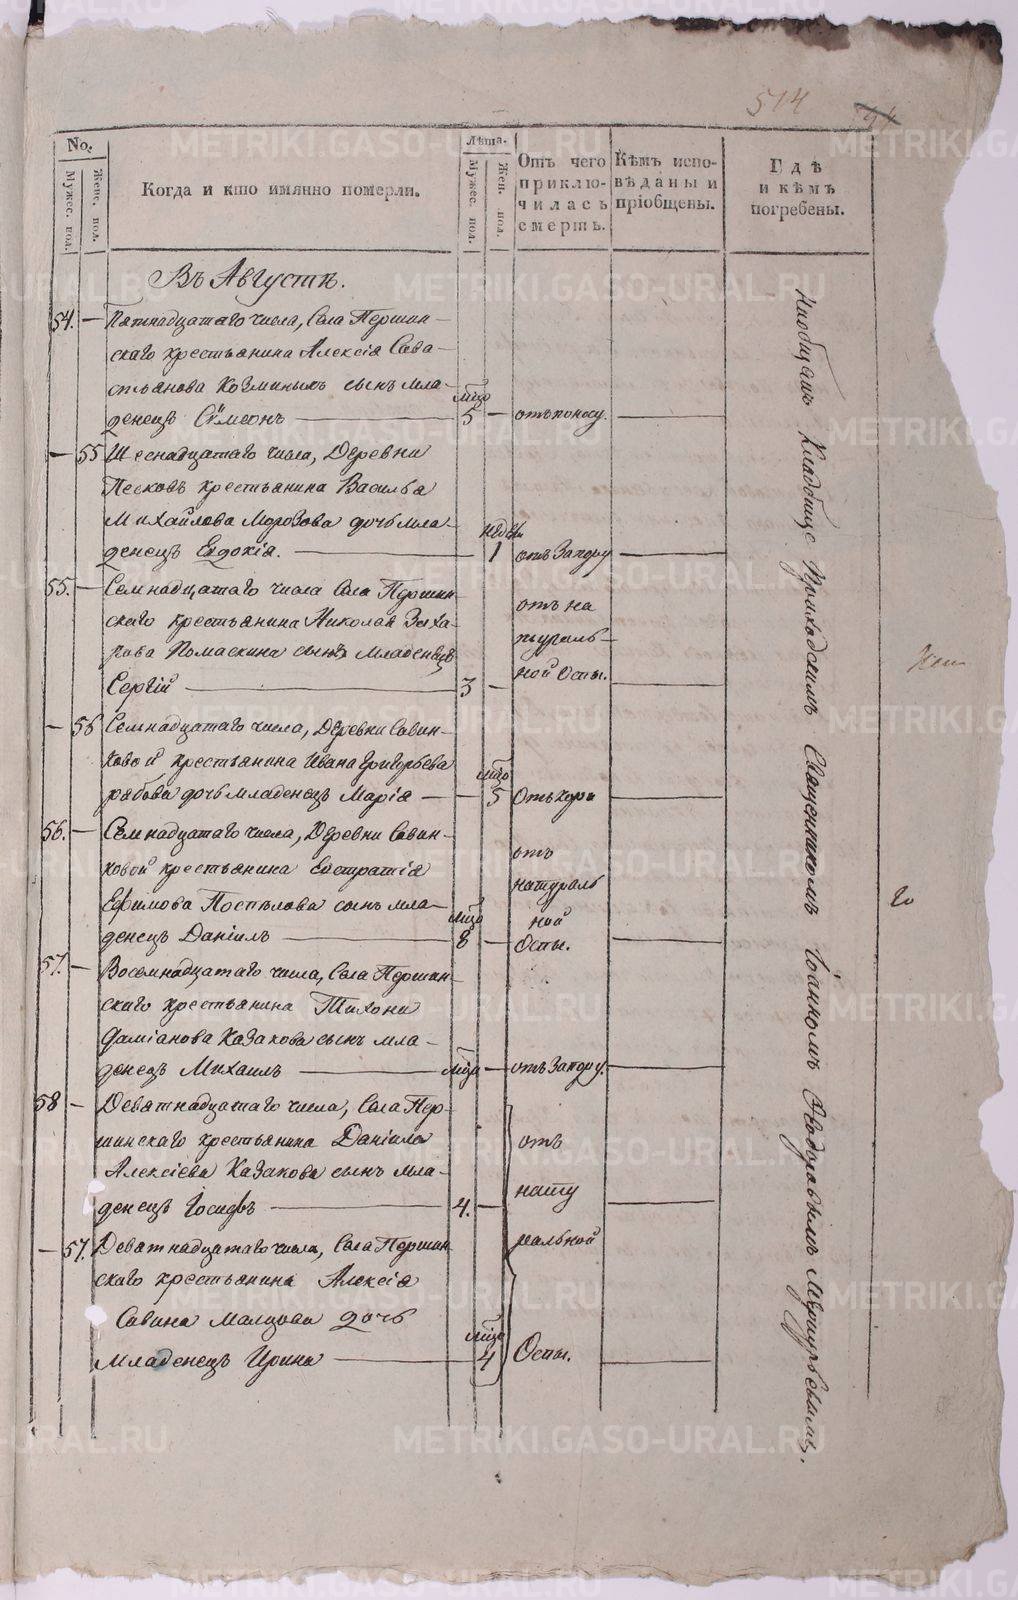 514
No.
Мужес. пол.
Женс. пол.
Когда и кто имянно померли.
Лѣта.
Мужес. пол.
Жен. пол.
Отъ чего
приклю-
чилась
смерть.
Кѣмъ испо-
вѣданы и
пріобщены.
Гдѣ
и кѣмъ
погребены.
Въ Августѣ.
54. — Пятнадцатаго числа, Села Першин-
скаго крестьянина Алексія Сава-
стьянова Козминыхъ сынъ мла-
денецъ Сѷмеонъ — 5 — отъ поносу.
— 55 Шеснадцатаго числа, Деревни
Песковъ крестьянина Василья
Михайлова Морозова дочь мла-
денецъ Евдокія. — 1 отъ Запору
55. — Семнадцатаго числа Села Першин-
скаго крестьянина Николая Заха-
рова Помаскина сынъ младенецъ
Сергій — 3 —
отъ на
турааль-
ной Оспы.
— 56 Семнадцатаго числа, Деревни Савин-
ковой крестьянина Ивана Григорьева
дочь младенецъ Марія — 5 Отъ кори
56. — Семнадцатаго числа, Деревни Савин-
ковой крестьянина Евстратія
Ефимова Поспѣлова сынъ мла-
денецъ Даніилъ — 8 —
отъ
натураль
ной
Оспы.
57. — Восемнадцатаго числа, Села Першин-
скаго крестьянина Тихона
Даміанова Казакова сынъ мла-
денецъ Михаилъ — — отъ Запору.
58 — Девятнадцатаго числа, Села Пер-
шинскаго крестьянина Даніила
Алексіева Казакова сынъ мла-
денецъ Іосифъ — 4. —
— 57. Девятнадцатаго числа, Села Першин-
скаго крестьянина Алексія
Савина Малцова дочь
младенецъ Ирина — 4
отъ
нату
ральной
Оспы.
Кладбище Приходскимъ Священникомъ Іоанномъ
METRIKI.GASO-URAL.RU